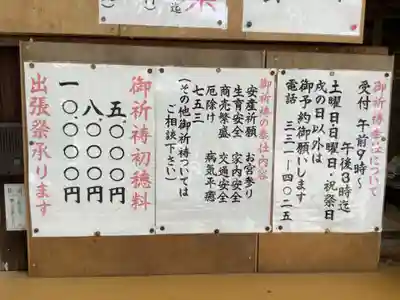 御祈祷奉仕について
受付 午前9時~
午後3時迄
土曜日・日曜日・祝祭日
戌の日以外は
御予約御願いします
電話 321-4025
御祈祷の奉仕内容
安産祈願 お宮参り
生育安全 家内安全
商売繁盛 交通安全
厄除け 病気平癒
七五三
(その他御祈祷については
ご相談下さい)
御祈祷初穂料
五、〇〇〇円
八、〇〇〇円
一〇、〇〇〇円
出張祭承ります